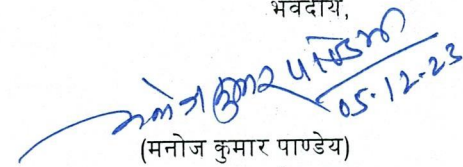 भवदीय,
मनोज कुमार पाण्डेय
05.12.23
(मनोज कुमार पाण्डेय)